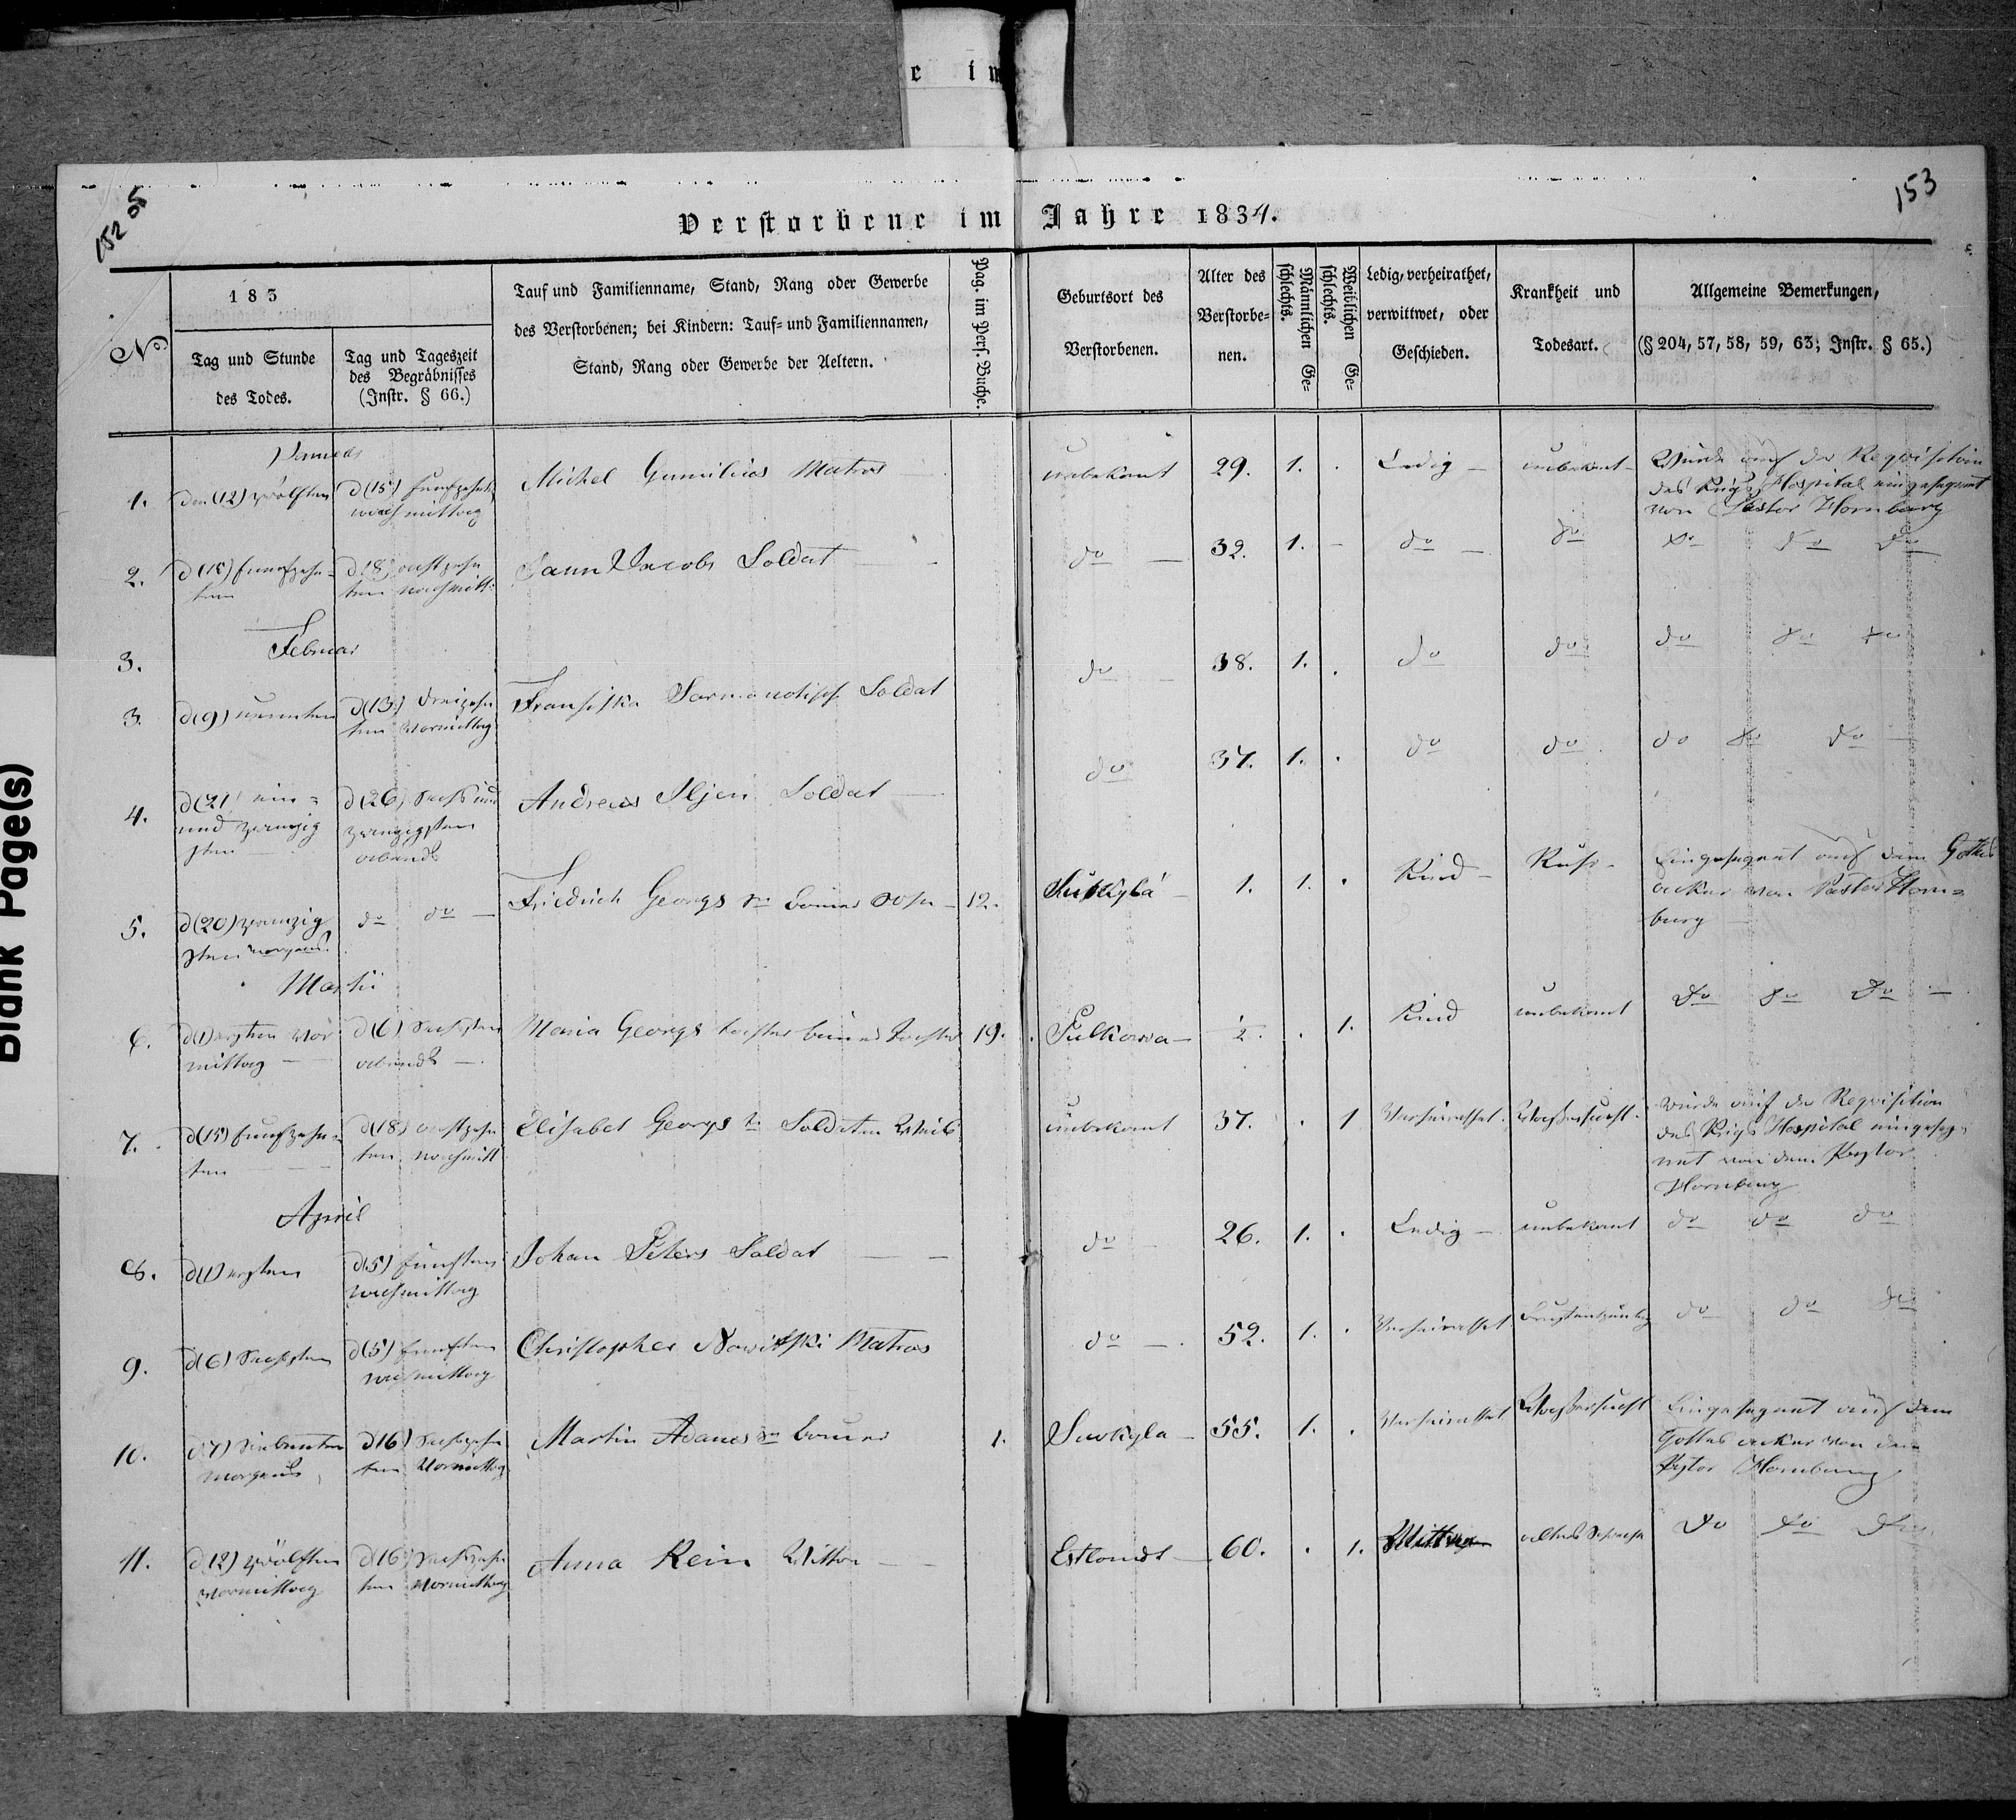 e im
152
153
Verstorbene im Jahre 1834.
№
183
Tag und Stunde
des Todes.
Tag und Tageszeit
des Begräbnisses
(Instr. § 66.)
Tauf und Familienname, Stand, Rang oder Gewerbe
des Verstorbenen; bei Kindern: Tauf- und Familiennamen,
Stand, Rang oder Gewerbe der Aeltern.
Pag. im Pers. Buche.
Geburtsort des
Verstorbenen.
Alter des
Verstorbe-
nen.
Männlichen Ge-
schlechts.
Weiblichen Ge-
schlechts.
Ledig, verheirathet,
verwittwet, oder
Geschieden.
Krankheit und
Todesart.
Allgemeine Bemerkungen,
(§ 204, 57, 58, 59, 63; Instr. § 65.)
1. den (12) zwölften d (15) funfzehnten
nachmittag
Michel Matros
unbekant 29. 1. Ledig unbekant
Wurde auf der Requisition
des Hospital eingesegnet
von Pastor Hornburg
2. d (15) funfzehn-
ten
d (18) achtzehn
ten nachmitt:
Jann Jacobs Soldat
do 32. 1. do do do do do
Februar
3.
do 38. 1. do do do do do
3. d (9) neunten d (13) dreizehn
ten Vormittag
Soldat
4. d (21) ein-
und zwanzig
sten
d (26) sechs und
zwanzigsten
abends
Andreas Iljen Soldat
do 37. 1. do do do do do
5. d (20) zwanzig
sten morgens
do do
Friedrich Georgs sn 12.
1. 1. Kind
Eingesegnet auf dem Gottes
acker von Pastor Horn-
burg
Martii
6. d (1) ersten Vor
mittag
d (6) sechsten
abends
Maria Georgs tochter 19.
Pulkowa ½ 1. Kind unbekant do do do
7. d (15) funfzehn-
ten
d (18) achtzehn
ten nachmitt
Elisabet Georgs Soldaten Weib
unbekant 37. 1 Verheirathet Waßersucht
Wurde auf der Requisition
des Hospital eingeseg-
net von dem Pastor
Hornburg
April
8. d (1) ersten d (5) funften
nachmittag
Johan Peters Soldat
do 26. 1. Ledig unbekant do do do
9. d (6) sechsten d (5) funften
nachmittag
Christopher Nowitski Matros
do 52. 1. Verheirathet do do do
10. d (7) siebenten
morgens
d (16) sechszehn
ten Vormittag
Martin Adams sn 1.
55. 1. Verheirathet Waßersucht
Eingesegnet auf dem
Gottes acker von dem
Hornburg
11. d (12) zwölften
vormittag
d (16) sechszehn
ten Vormittag
Anna Rein
Estlandt 60. 1. do do do
Blank Page(s)